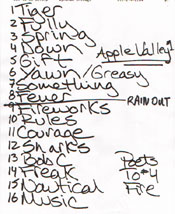 1 Tiger
2 Fully
3 Spring
4 Down
5 Gift
Apple Valley
6 Yawn/Greasy
7 Something
8 Fewer
RAIN OUT
9 Fireworks
10 Rules
11 Courage
12 Sharks
13 Bob C
14 Freak
15 Nautical
16 Music
Poets
10 #4
Fire